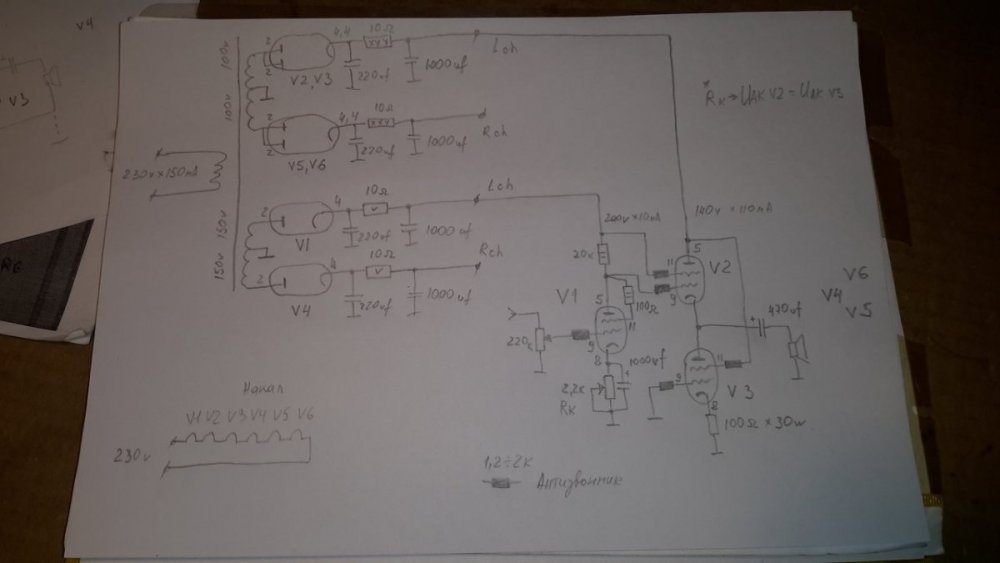 V4
V3
2
2
4,4
10Ω
220uf
1000uf
Lch
V2, V3
100v
100v
2
2
4,4
10Ω
220uf
1000uf
Rch
V5, V6
*Rк → UАК V2 = UАК V3
230v x 150mA
150v
150v
2
4
10Ω
220uf
1000uf
Lch
V1
2
4
10Ω
220uf
1000uf
Rch
V4
200v x 10mA
140v x 110mA
20к
100Ω
V1
5
11
9
8
220к
2,2к
Rк
1000uf
5
11
9
V2
V6
V4
V5
+
470uf
9
11
V3
8
100Ω x 30w
Накал
V1 V2 V3 V4 V5 V6
230v
1,2÷2к
Антизвонник